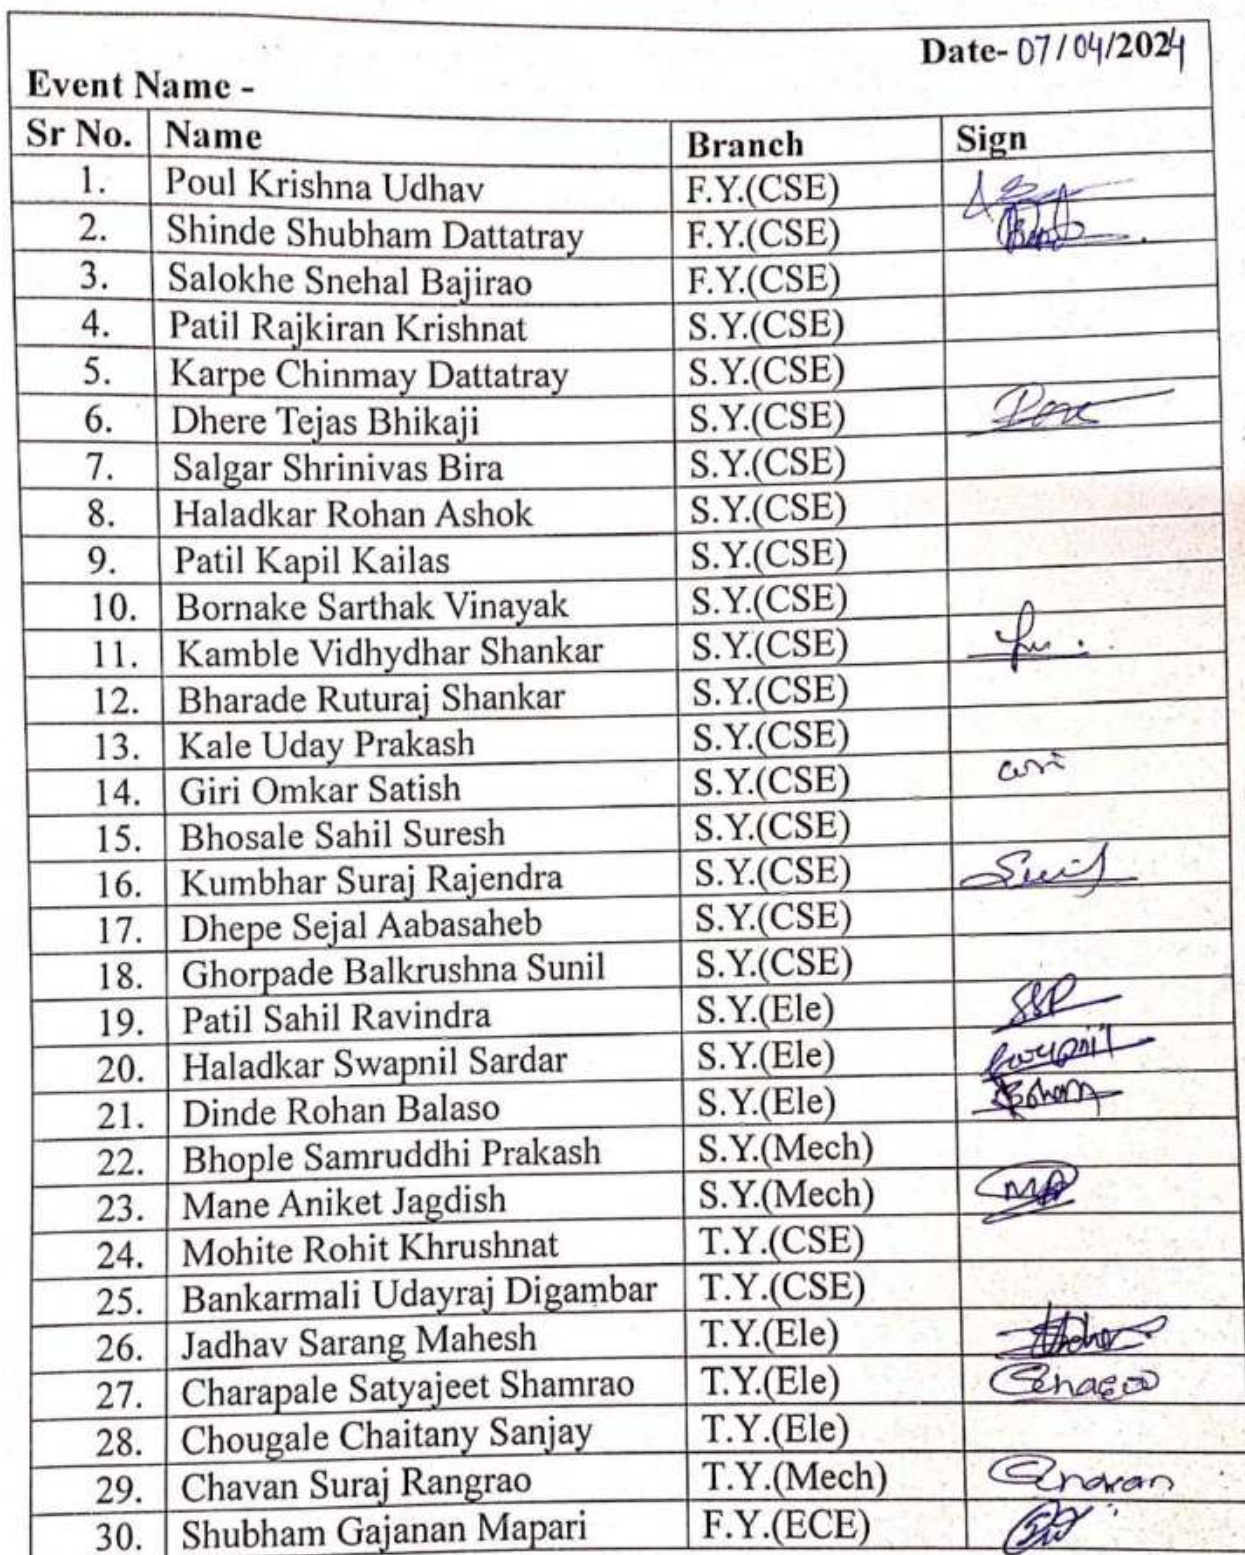 Date- 07/04/2024
Event Name -
Sr No. Name Branch Sign
1. Poul Krishna Udhav F.Y.(CSE)
2. Shinde Shubham Dattatray F.Y.(CSE)
3. Salokhe Snehal Bajirao F.Y.(CSE)
4. Patil Rajkiran Krishnat S.Y.(CSE)
5. Karpe Chinmay Dattatray S.Y.(CSE)
6. Dhere Tejas Bhikaji S.Y.(CSE)
7. Salgar Shrinivas Bira S.Y.(CSE)
8. Haladkar Rohan Ashok S.Y.(CSE)
9. Patil Kapil Kailas S.Y.(CSE)
10. Bornake Sarthak Vinayak S.Y.(CSE)
11. Kamble Vidhydhar Shankar S.Y.(CSE)
12. Bharade Ruturaj Shankar S.Y.(CSE)
13. Kale Uday Prakash S.Y.(CSE)
14. Giri Omkar Satish S.Y.(CSE)
15. Bhosale Sahil Suresh S.Y.(CSE)
16. Kumbhar Suraj Rajendra S.Y.(CSE)
17. Dhepe Sejal Aabasaheb S.Y.(CSE)
18. Ghorpade Balkrushna Sunil S.Y.(CSE)
19. Patil Sahil Ravindra S.Y.(Ele) SSP
20. Haladkar Swapnil Sardar S.Y.(Ele) Swapnil
21. Dinde Rohan Balaso S.Y.(Ele)
22. Bhople Samruddhi Prakash S.Y.(Mech)
23. Mane Aniket Jagdish S.Y.(Mech)
24. Mohite Rohit Khrushnat T.Y.(CSE)
25. Bankarmali Udayraj Digambar T.Y.(CSE)
26. Jadhav Sarang Mahesh T.Y.(Ele)
27. Charapale Satyajeet Shamrao T.Y.(Ele)
28. Chougale Chaitany Sanjay T.Y.(Ele)
29. Chavan Suraj Rangrao T.Y.(Mech) Chavan
30. Shubham Gajanan Mapari F.Y.(ECE)